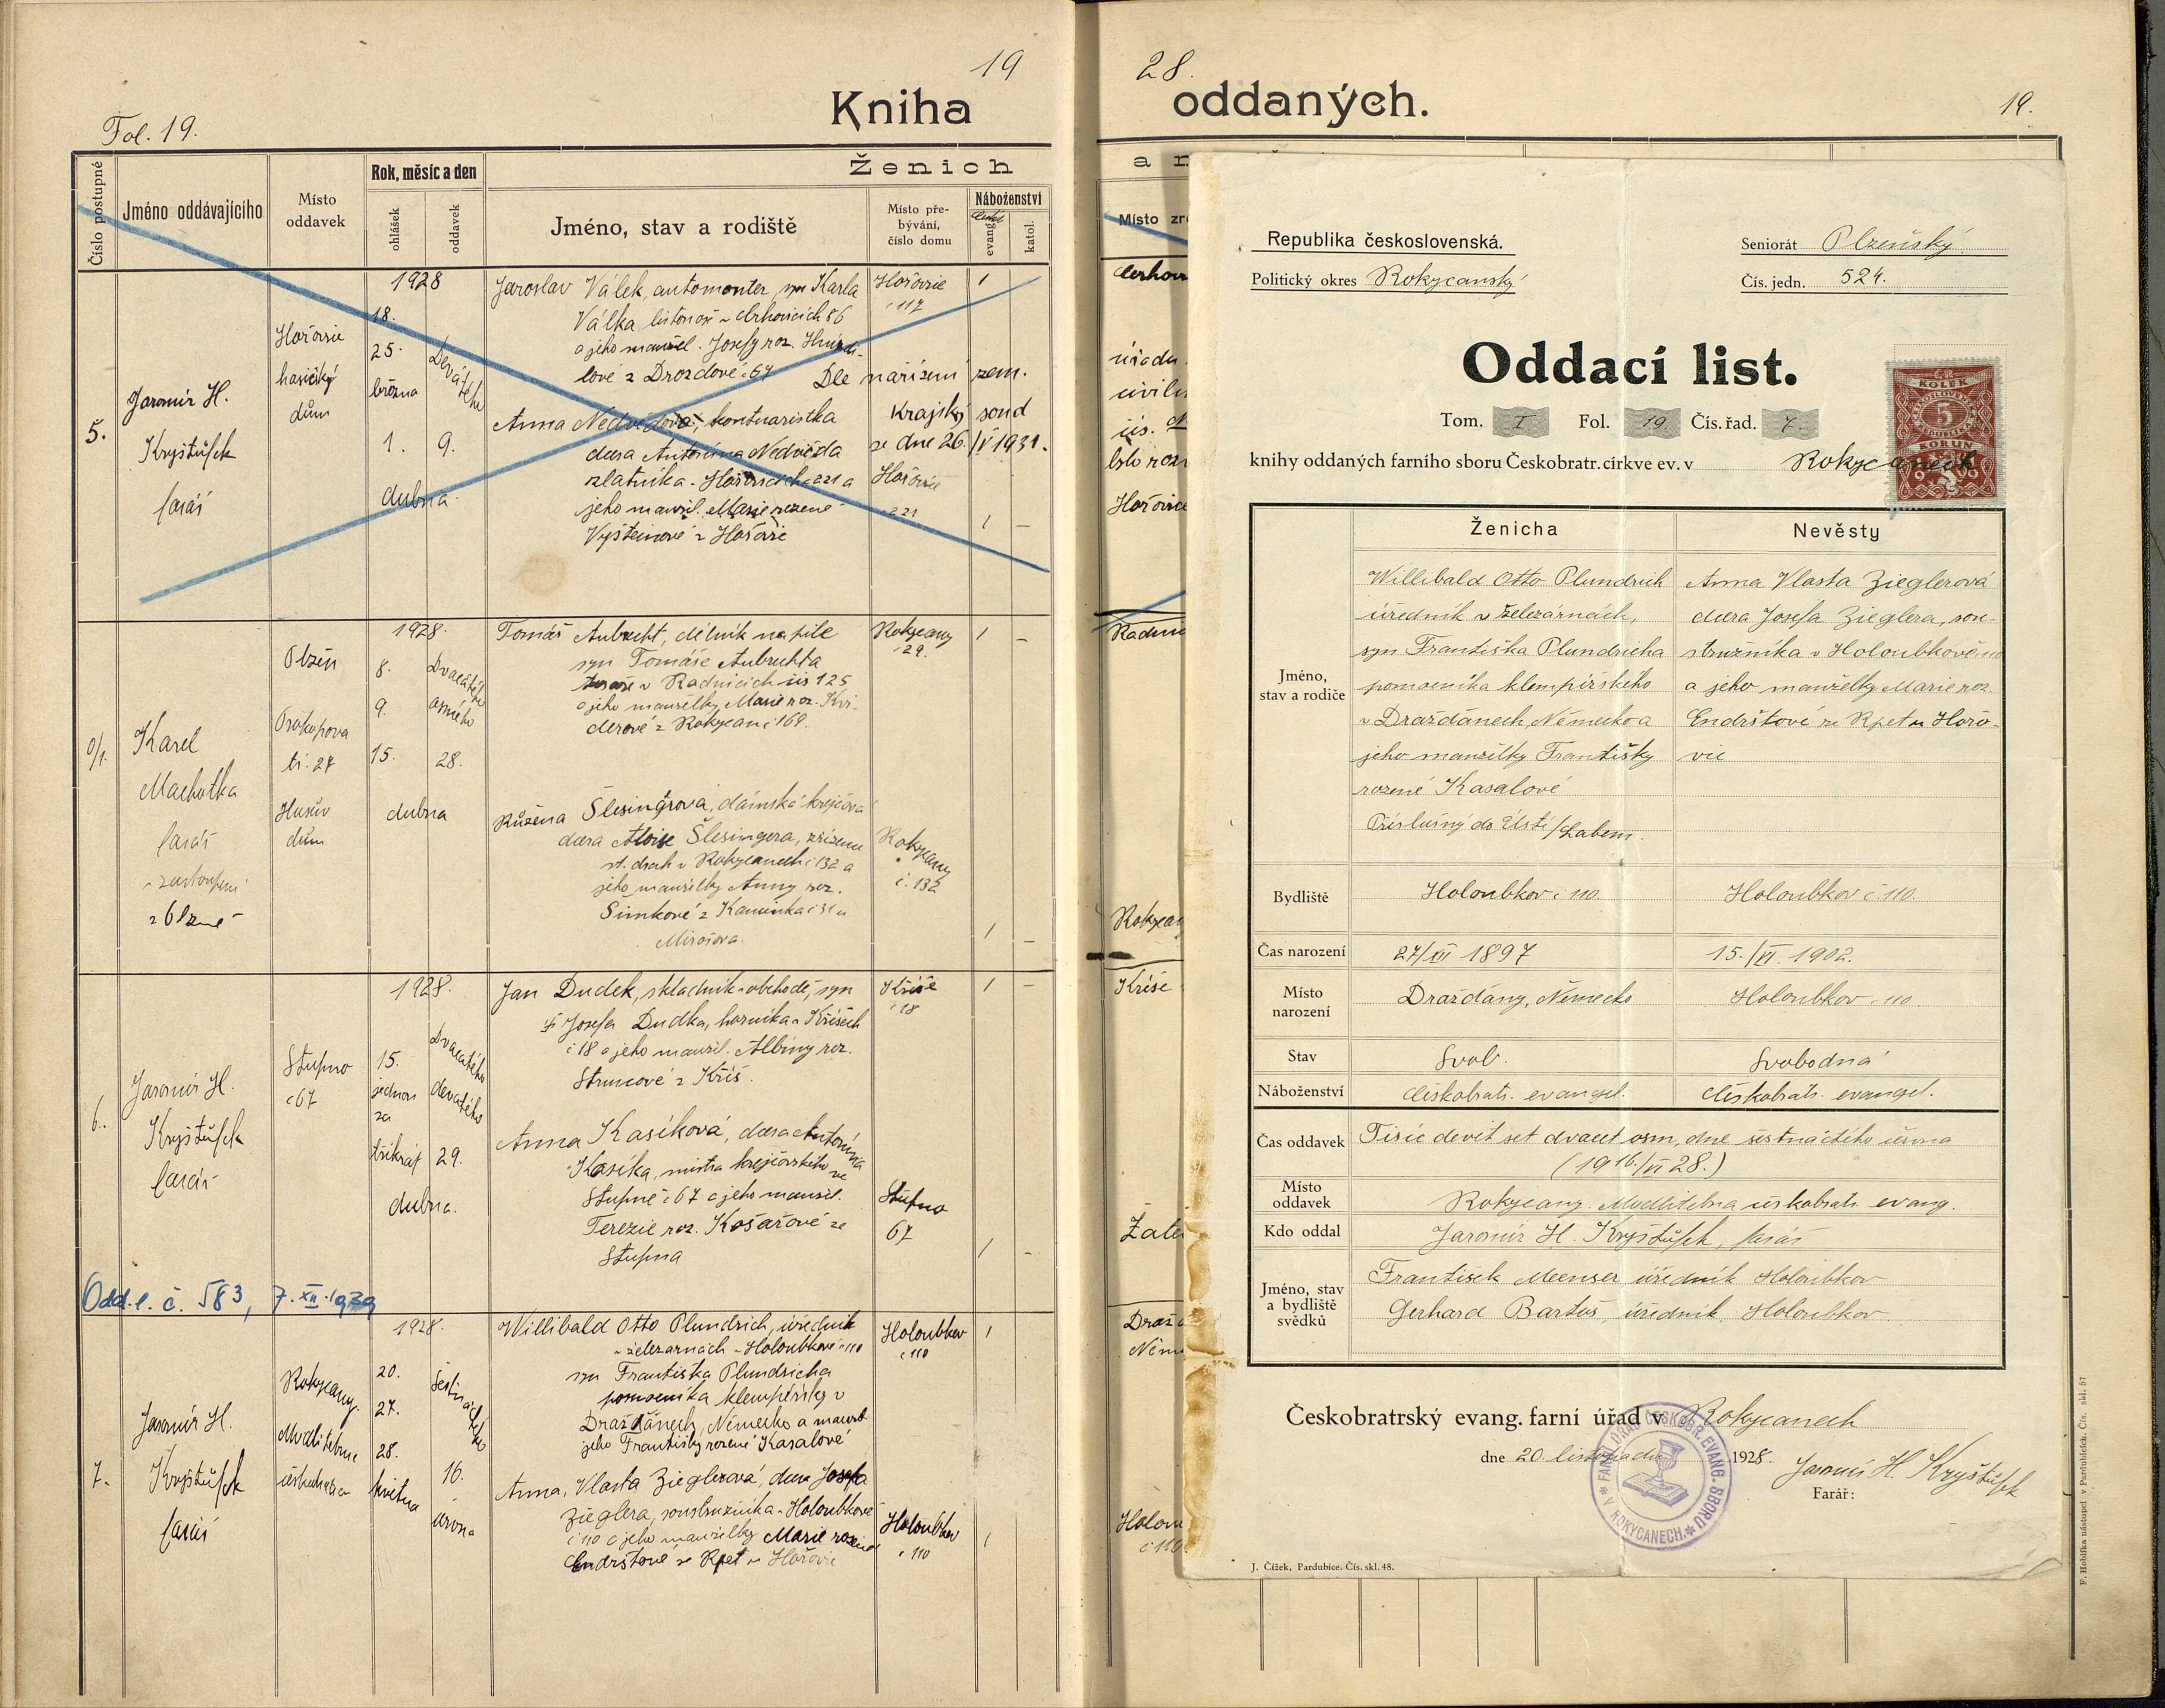 19
Fol. 19.
Kniha
Číslo postupné
Jméno oddávajícího
Místo oddavek
Rok, měsíc a den
ohlášek
oddavek
Ženich
Jméno, stav a rodiště
Místo pře-
bývání,
číslo domu
Náboženství
evang.
katol.
5.
Jaromír H.
Kryštůfek
farář
Hořovice
hasičský
dům
1928
18.
25.
března
1.
dubna
Devátého
9.
Jaroslav Válek, automonter, syn Karla
Válka listonoše v Cerhovicích 86
a jeho manžel. Josefy roz.
lové z Drozdova č 67
Hořovice
č 117
1
Dle nařízení zem.
Krajský soud
ze dne 26/V 1931.
Anna Nedvědová, kontoaristka
dcera Antonína Nedvěda
zlatníka v Hořovicích č 221 a
jeho manžel. Marie rozené
z Hořovic
Hořovice
č 221
1 –
0/1.
Karel
Machotka
farář
v zastoupení
z Plzně
Plzeň
Prokopova
tř. 27
Husův
dům
1928.
8.
9.
15.
dubna
Dvacátého
osmého
28.
Tomáš Aubrecht, dělník na pile
syn Tomáše Aubrechta
tesaře v Radnicích čís 125
a jeho manželky Marie roz.
derové z Rokycan č 169.
Rokycany
č 29.
1 –
Růžena Šlesingrová, dámská krejčová
dcera Aloise Šlesingera, zřízence
st. drah v Rokycanech č 132 a
jeho manželky Anny roz.
Šimkové z Kamínka č 31 u
Mirošova.
Rokycany
č. 132
1 –
6.
Jaromír H.
Kryštůfek
farář
Stupno
č 67
1928.
15.
jednou
za
třikrát
dubna.
Dvacátého
devátého
29.
Jan Dudek, skladník v obchodě, syn
Josefa Dudka, horníka v Křiších
č 18 a jeho manžel. Albíny roz.
Strncové z Kříš.
Kříše
č 18
1 –
Anna Kasíková, dcera Antonína
Kasíka, mistra krejčovského ve
Stupně č 67 a jeho manžel.
Terezie roz. Košařové ze
Stupna
Stupno
67
1 –
Odd. l. č. 583, 7. XII. 1939
7.
Jaromír H.
Kryštůfek
farář
Rokycany.
Modlitebna
českobratr
1928.
20.
27.
28.
května
šestnáctého
16.
června
Willibald Otto Plundrich, úředník
v železárnách v Holoubkově č 110
syn Františka Plundricha
pomocníka klempířský v
Drážďánech, Německo a manžel.
jeho Františky rozené Kasalové
Holoubkov
č 110
1
Anna, Vlasta Zieglerová, dcera Josefa
Zieglera, soustružníka v Holoubkově
č 110 a jeho manželky Marie rozené
Endrštové ze Rpet u Hořovic
Holoubkov
č 110
1
28.
oddaných.
19.
Místo
Radnic
Kříše
Holoub
č 110
Republika československá.
Seniorát Plzeňský
Politický okres Rokycanský
Čís. jedn. 524.
Oddací list.
Tom. I Fol. 19. Čís. řad. 7.
knihy oddaných farního sboru Českobratr. církve ev. v Rokycanech
KOLEK
5
KORUN
Ženicha
Nevěsty
Jméno,
stav a rodiče
Willibald Otto Plundrich
úředník v železárnách,
syn Františka Plundricha
pomocníka klempířského
v Drážďánech, Německo a
jeho manželky Františky
rozené Kasalové
Příslušný do Ústí/Labem.
Anna Vlasta Zieglerová
dcera Josefa Zieglera, sou-
stružníka v Holoubkově č 110
a jeho manželky Marie roz.
Endrštové ze Rpet u Hořo-
vic
Bydliště
Holoubkov č 110.
Holoubkov č 110.
Čas narození
27/XII 1897
15./VI. 1902.
Místo
narození
Drážďany, Německo
Holoubkov č 110
Stav
Svob.
Svobodná
Náboženství
Českobratr. evangel.
Českobratr. evangel.
Čas oddavek
Tisíc devět set dvacet osm, dne šestnáctého června
(19 16./VI 28.)
Místo
oddavek
Rokycany Modlitebna českobratr. evang.
Kdo oddal
Jaromír H. Kryštůfek, farář
Jméno, stav
a bydliště
svědků
František Meenser úředník Holoubkov
Gerhard Bartoš, úředník, Holoubkov
Českobratrský evang. farní úřad v Rokycanech
dne 20. listopadu 1928.
Jaromír H. Kryštůfek
Farář:
FARNÍ ÚŘAD ČESKOBR. EVANG. SBORU V ROKYCANECH.
J. Čížek, Pardubice. Čís. skl. 48.
F. Hoblíka nástupci v Pardubicích. Čís. skl. 57